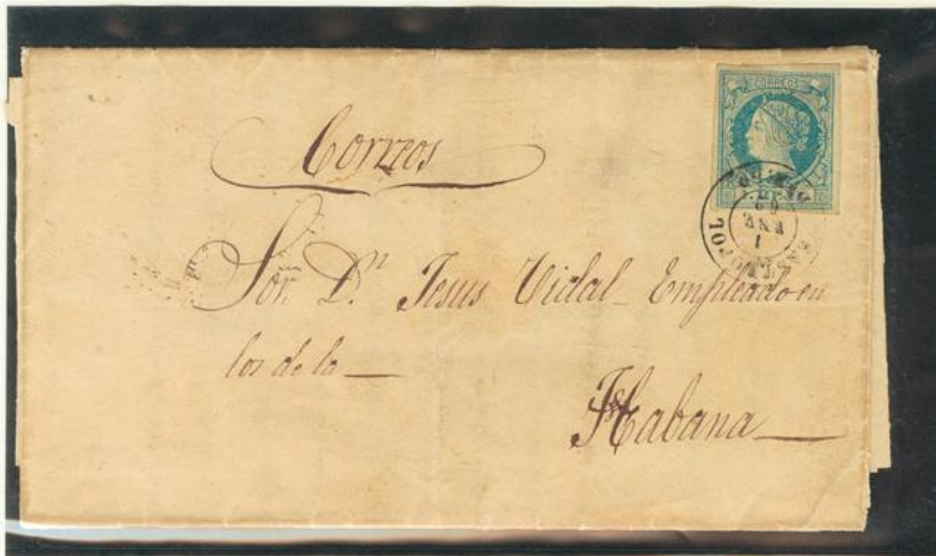 CORREOS
Correos
Sor. Dn. Jesus Vidal Empleado en
los de la
Habana
1
ENE